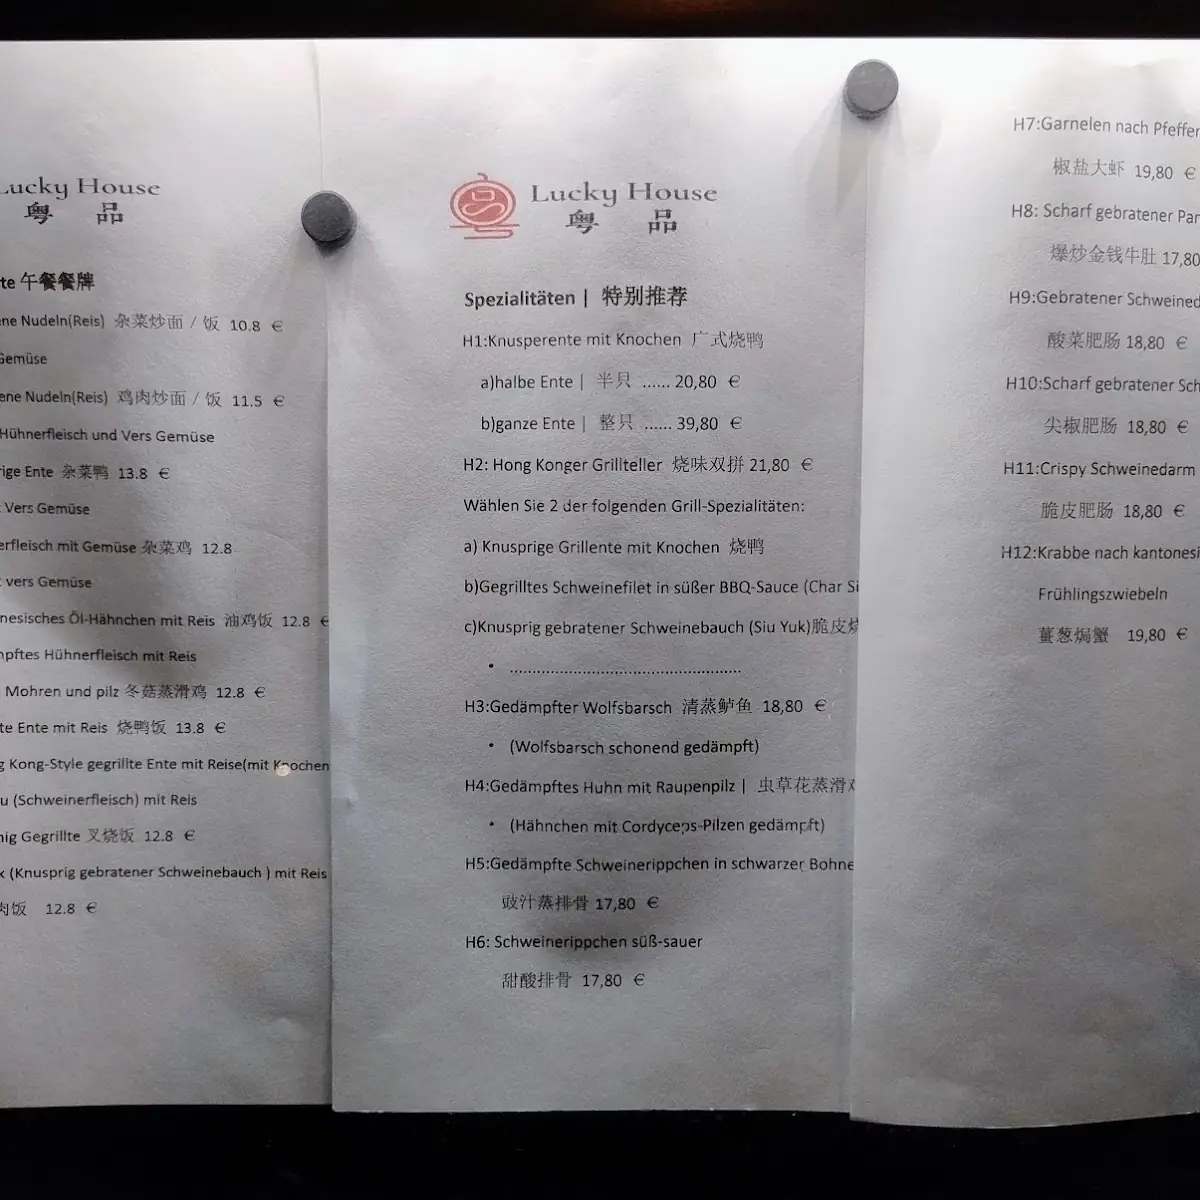 Lucky House
粤 品
te 午餐餐牌
ene Nudeln(Reis) 杂菜炒面 / 饭 10.8 €
Gemüse
ene Nudeln(Reis) 鸡肉炒面 / 饭 11.5 €
Hühnerfleisch und Vers Gemüse
rige Ente 杂菜鸭 13.8 €
Vers Gemüse
erfleisch mit Gemüse 杂菜鸡 12.8
vers Gemüse
nesisches Öl-Hähnchen mit Reis 油鸡饭 12.8 €
mpftes Hühnerfleisch mit Reis
Mohren und pilz 冬菇蒸滑鸡 12.8 €
te Ente mit Reis 烧鸭饭 13.8 €
g Kong-Style gegrillte Ente mit Reise(mit Knochen
u (Schweinerfleisch) mit Reis
nig Gegrillte 叉烧饭 12.8 €
k (Knusprig gebratener Schweinebauch ) mit Reis
肉饭 12.8 €
Lucky House
粤 品
Spezialitäten | 特别推荐
H1:Knusperente mit Knochen 广式烧鸭
a)halbe Ente | 半只 ...... 20,80 €
b)ganze Ente | 整只 ...... 39,80 €
H2: Hong Konger Grillteller 烧味双拼 21,80 €
Wählen Sie 2 der folgenden Grill-Spezialitäten:
a) Knusprige Grillente mit Knochen 烧鸭
b)Gegrilltes Schweinefilet in süßer BBQ-Sauce (Char Si
c)Knusprig gebratener Schweinebauch (Siu Yuk)脆皮烧
• ..................................................
H3:Gedämpfter Wolfsbarsch 清蒸鲈鱼 18,80 €
• (Wolfsbarsch schonend gedämpft)
H4:Gedämpftes Huhn mit Raupenpilz | 虫草花蒸滑鸡
• (Hähnchen mit Cordyceps-Pilzen gedämpft)
H5:Gedämpfte Schweinerippchen in schwarzer Bohne
豉汁蒸排骨 17,80 €
H6: Schweinerippchen süß-sauer
甜酸排骨 17,80 €
H7:Garnelen nach Pfeffer
椒盐大虾 19,80 €
H8: Scharf gebratener Pan
爆炒金钱牛肚 17,80
H9:Gebratener Schweined
酸菜肥肠 18,80 €
H10:Scharf gebratener Sch
尖椒肥肠 18,80 €
H11:Crispy Schweinedarm
脆皮肥肠 18,80 €
H12:Krabbe nach kantonesi
Frühlingszwiebeln
薑葱焗蟹 19,80 €